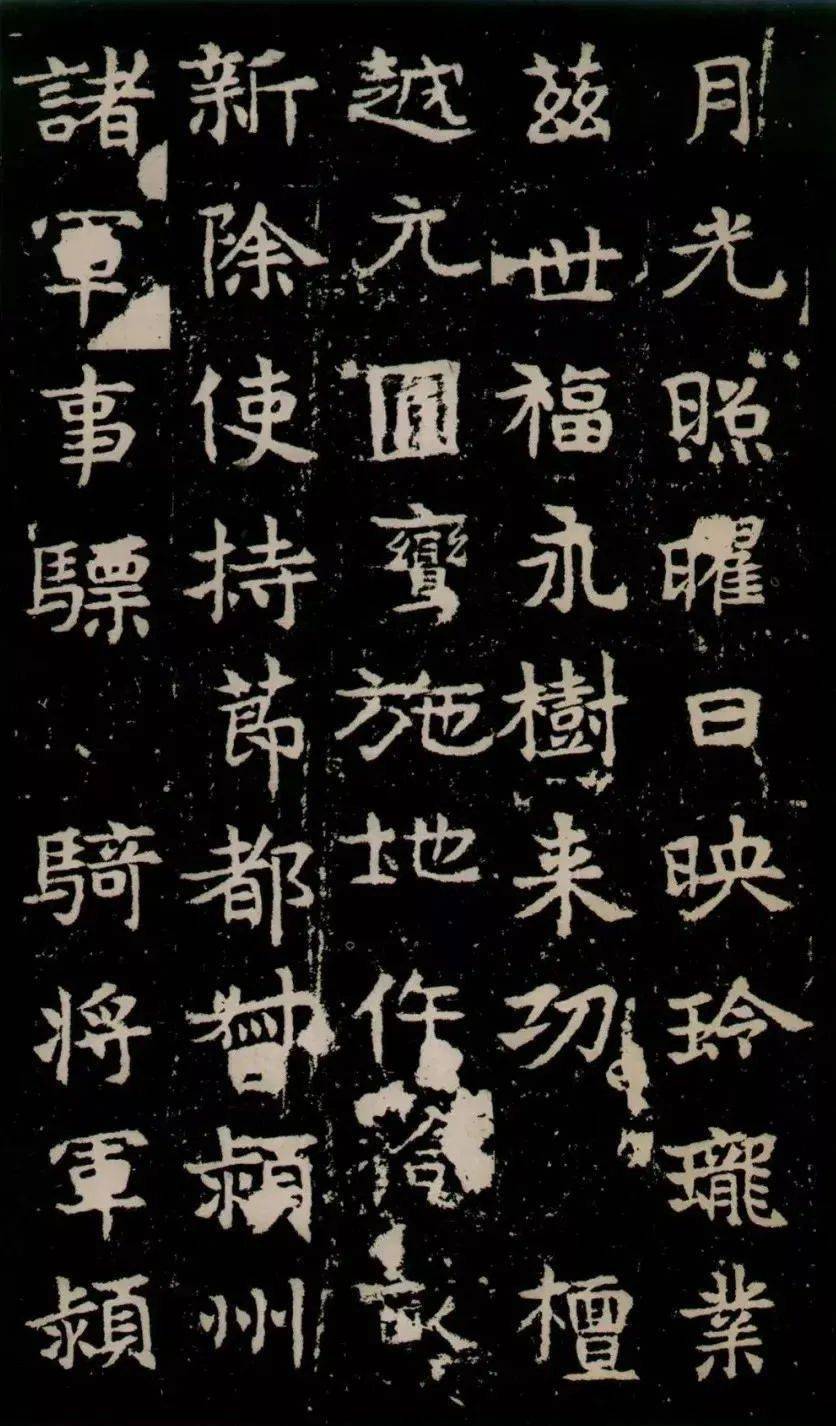 月光照曜日映玲瓏業
茲世福永樹来功檀
越元圓鸞施地
新除使持節都督潁州
諸軍事驃騎将軍潁